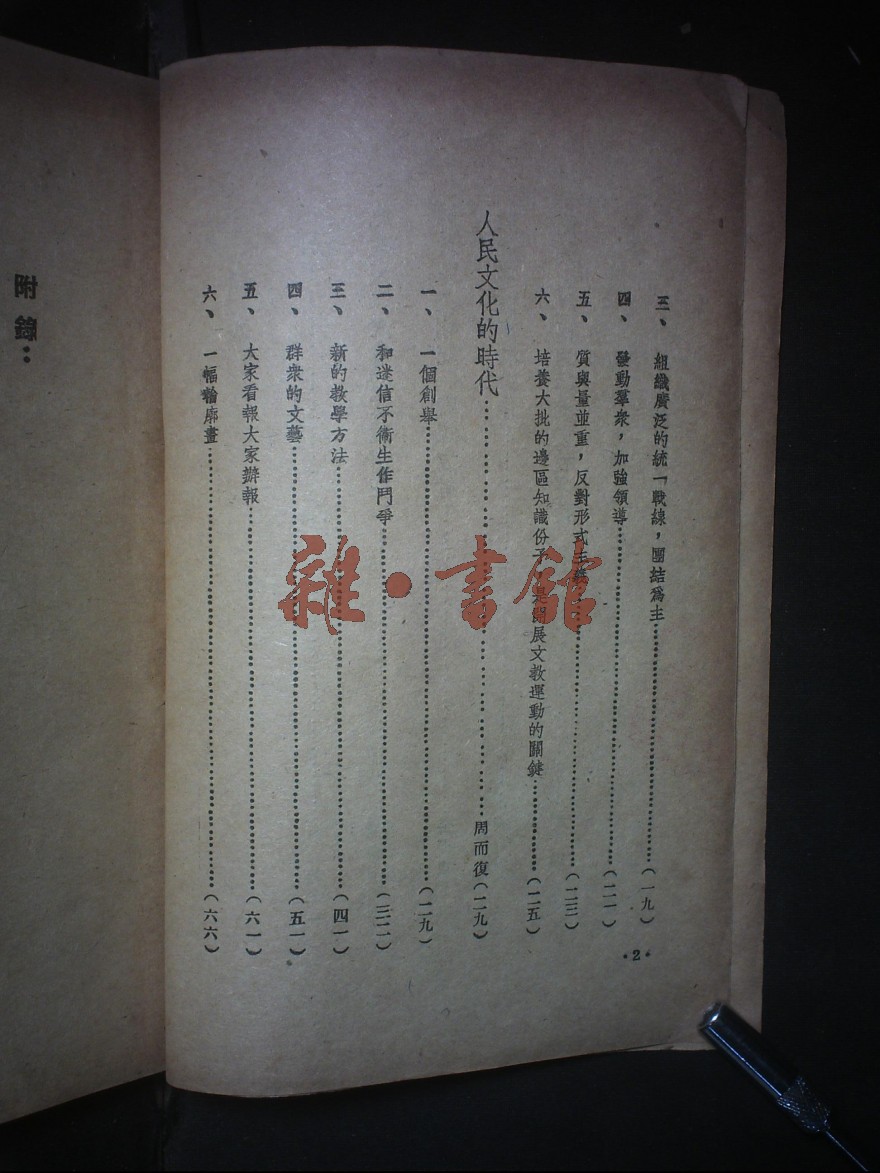 三、組織廣泛的統一戰線，團結爲主……（一九）
四、發動羣衆，加強領導……（二一）
五、質與量並重，反對形式主義……（二三）
六、培養大批的邊區知識份子，是開展文教運動的關鍵……（二五）
人民文化的時代……周而復（二九）
一、一個創舉……（二九）
二、和迷信不衛生作鬥爭……（三二）
三、新的教學方法……（四一）
四、群衆的文藝……（五一）
五、大家看報大家辦報……（六一）
六、一幅輪廓畫……（六六）
·2·
附錄：
雜·書館